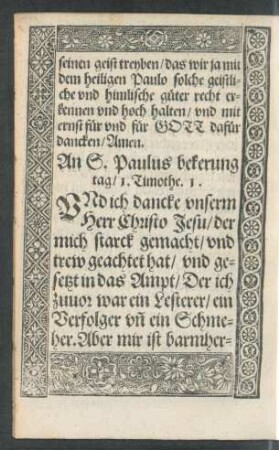 seinen geist treyben/das wir ja mit
dem heiligen Paulo solche geistli-
che vnd himlische güter recht er-
kennen vnd hoch halten/ vnd mit
ernst für vnd für GOTT dafür
dancken/Amen.
An S. Paulus bekerung
tag/ 1. Timothe. 1.
VNd ich dancke vnserm
Herr Christo Jesu/der
mich starck gemacht/vnd
trew geachtet hat/ vnd ge-
setzt in das Ampt/Der ich
zuuor war ein Lesterer/ein
Verfolger vñ ein Schme-
her. Aber mir ist barmher-